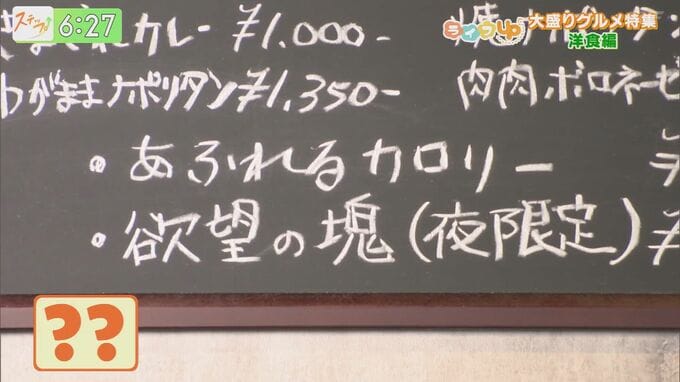 ステップ
6:27
ライフUP
大盛りグルメ特集
洋食編
カレー ¥1.000-
わがままナポリタン ¥1.350-
肉肉ボロネーゼ
・あふれるカロリー
・欲望の塊(夜限定) ¥
??